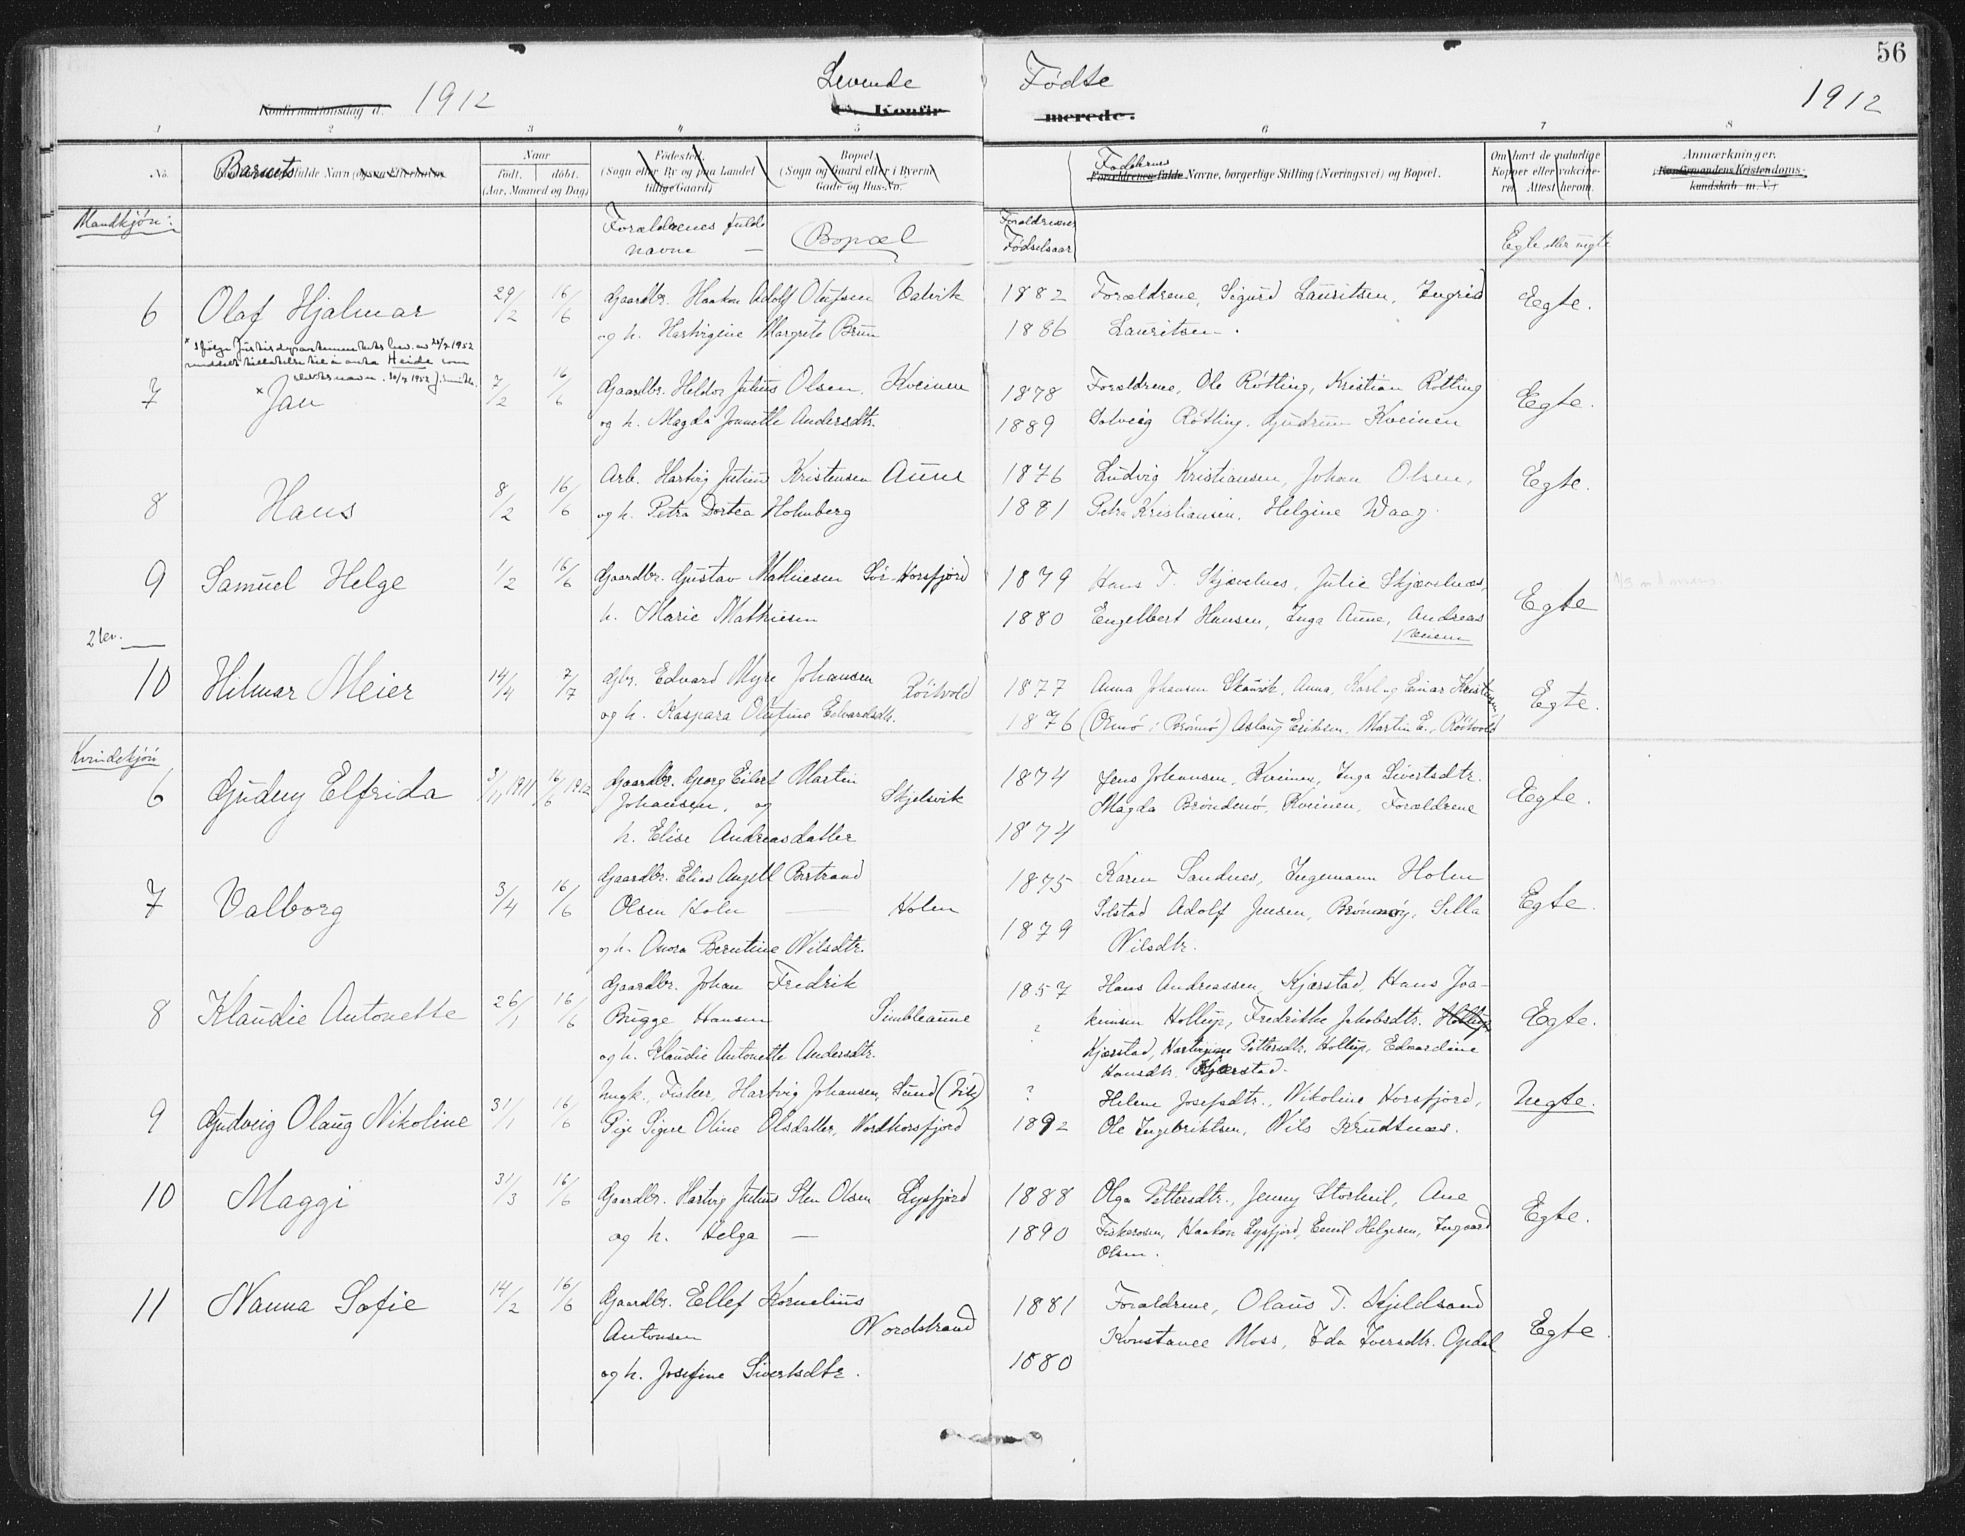 56
1912 Levende Fødte 1912
Konfirmationsdag d. Konfirmerede.
1 2 3 4 5 6 7 8
No. Barnets fulde Navn
Naar født. døbt. (Aar, Maaned og Dag)
Fødested. (Sogn eller By og paa Landet tillige Gaard)
Bopæl (Sogn og Gaard eller i Byerne Gade- og Hus-No.
Faddernes
Forældrenes fulde Navne, borgerlige Stilling (Næringsvei) og Bopæl.
Om havt de naturlige Kopper eller vaccineret Attest herom.
Anmærkninger.
(Konfirmandens Kristendomskundskab m. V.)
Mandkjøn: Forældrenes fulde navne — Bopæl Forældrenes Fødselsaar Egte eller uegte
6 Olaf Hjalmar 29/2 16/6 Gaardbr. Haakon Adolf Olufsen Valvik 1882 Forældrene, Sigurd Lauritsen, Ingrid Egte.
og h. Hartvigine Margrete Brun 1886 Lauritsen.
7 × Jan 7/2 16/6 Gaardbr. Heldor Julius Olsen, Kveinen 1878 Forældrene, Ole Røtting, Kristian Røtting Egte.
og h. Magda Jonette Andersdtr. 1889 Solveig Røtting, Gudrun Kveinen
8 Hans 8/2 16/6 Arb. Hartvig Julius Kristensen Aune 1876 Ludvig Kristiansen, Johan Olsen, Egte.
og h. Petra Dortea Holmberg 1881 Petra Kristiansen, Helgine Waag.
9 Samuel Helge 1/2 16/6 Gaardbr. Gustav Mathiesen Sør-Horsfjord 1879 Hans T. Skjævelnes, Julie Skjævelnæs, Egte
h. Marie Mathiesen 1880 Engelbert Hansen, Inga Aune, Andreas
Kveinen
2 lev.
10 Hilmar Meier 14/4 7/7 Gbr. Edvard Myre Johansen Røitvold 1877 Anna Johansen Skauvik, Anna, Karl og Einar Kristensen Egte.
og h. Kaspara Olufine Edvardsdtr. 1876 (Ormø i Brønnø) Aslaug Eriksen, Martin E., Røitvold
Kvindekjøn
6 Gudny Elfrida 3/11 1911 16/6 1912 Gaardbr. Georg Eilert Martin 1874 Jens Johansen, Kveinen, Inga Sivertsdtr. Egte.
Johansen, og Skjelsvik Magda Brøndmo, Kveinen, Forældrene
h. Elise Andreasdatter 1874
7 Valborg 3/4 16/6 Gaardbr. Elias Angell Bertrand 1875 Karen Sandnes, Ingemann Holen Egte.
Olsen Holen — Holen Solstad Adolf Jensen, Brønnøy, Silla
og h. Anora Berntine Nilsdtr. 1879 Nilsdtr.
8 Klaudie Antonette 26/1 16/6 Gaardbr. Johan Fredrik 1857 Hans Andreassen, Kjærstad, Hans Joa-
Brygge Hansen Simbleaune ? kimsen Hollup, Fredrikke Jakobsdtr. Hollup Egte.
og h. Klaudie Antonette Andersdtr. Kjærstad, Hartvigine Pettersdtr. Hollup, Edvardine
Hansdtr. Kjærstad.
9 Gudveig Olaug Nikoline 31/1 16/6 Ungk., Fisker, Hartvig Johansen, Sund (Vik) ? Helene Josefsdtr., Nikoline Horsfjord, Uegte.
Pige Signe Oline Olsdatter, Nordhorsfjord 1892 Ole Ingebriktsen, Nils Knudtnæs.
10 Maggi 31/3 16/6 Gaardbr. Hartvig Julius Sten Olsen Lysfjord 1888 Olga Pettersdtr., Jenny Storheil, Ane Egte.
og h. Helga — 1890 Fiskerosen, Haakon Lysfjord, Emil Helgesen, Ingvard
Olsen.
11 Nanna Sofie 14/2 16/6 Gaardbr. Ellef Kornelius 1881 Forældrene, Olaus T. Kjeldsand Egte.
Antonsen Nordstrand Konstance Moss, Ida Iversdtr. Opdal
og h. Josefine Sivertsdtr. 1880